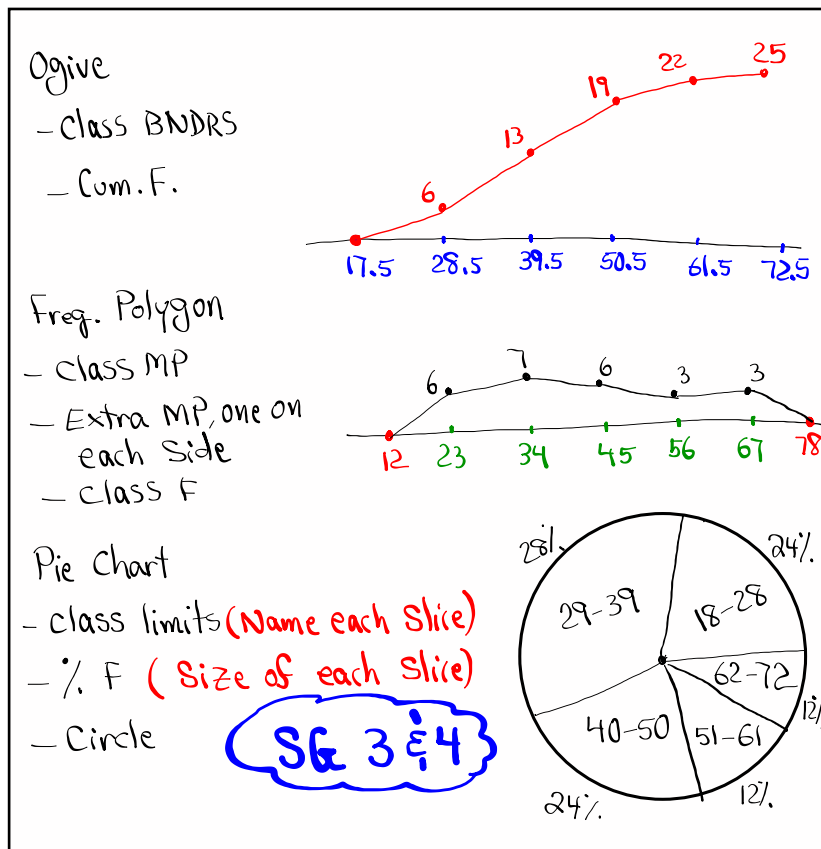 Ogive
- Class BNDRS
- Cum. F.
6 13 19 22 25
17.5 28.5 39.5 50.5 61.5 72.5
Freq. Polygon
- Class MP
- Extra MP, one on
each Side
- Class F
6 7 6 3 3
12 23 34 45 56 67 78
Pie Chart
- class limits (Name each Slice)
- % F (Size of each Slice)
- Circle
SG 3 & 4
28% 24%
29-39 18-28
62-72
12%
40-50 51-61
24% 12%